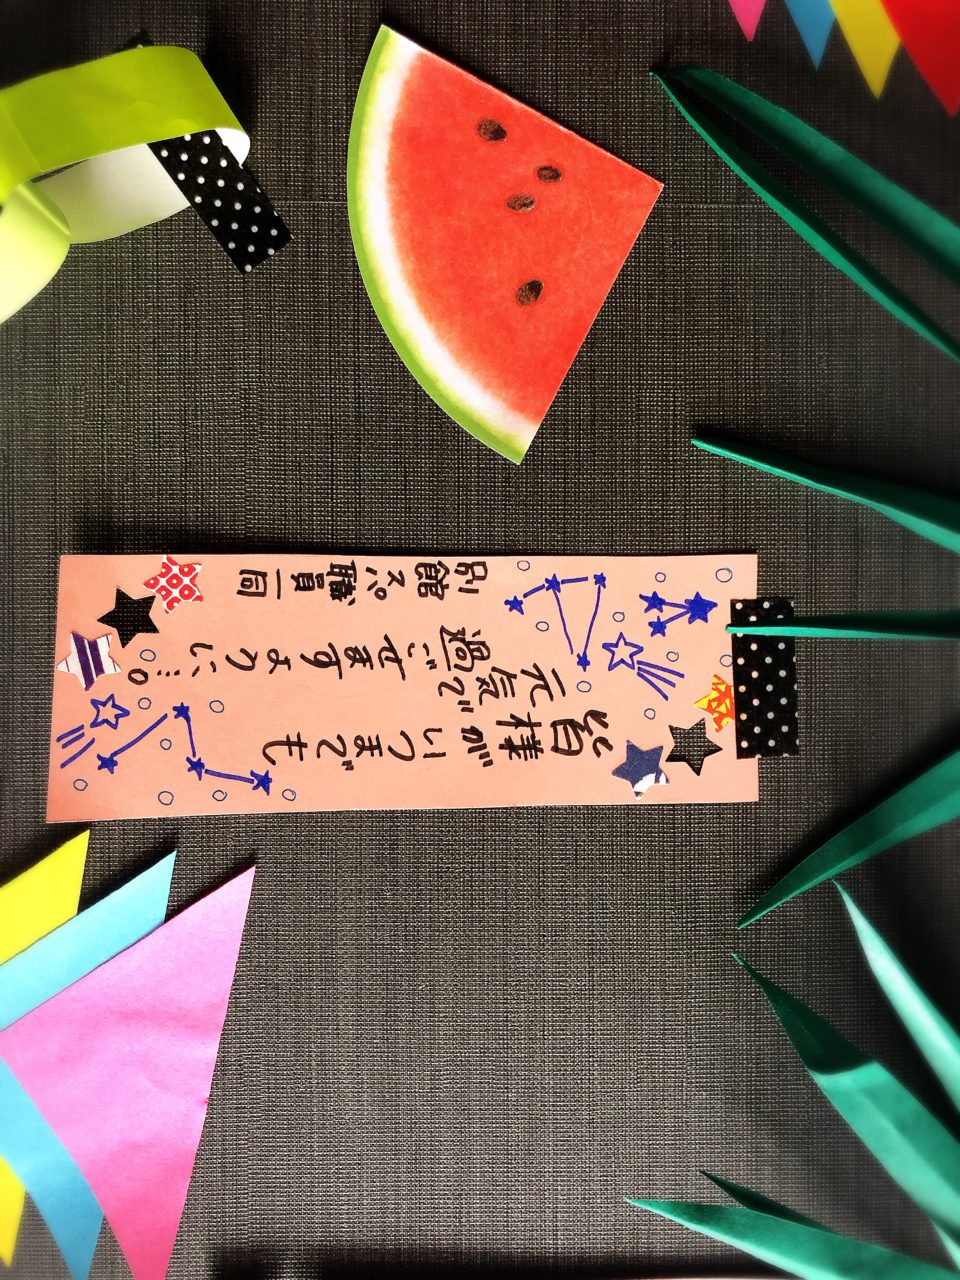 皆様がいつまでも
元気で
過ごせますように…。
別館スpo職員一同